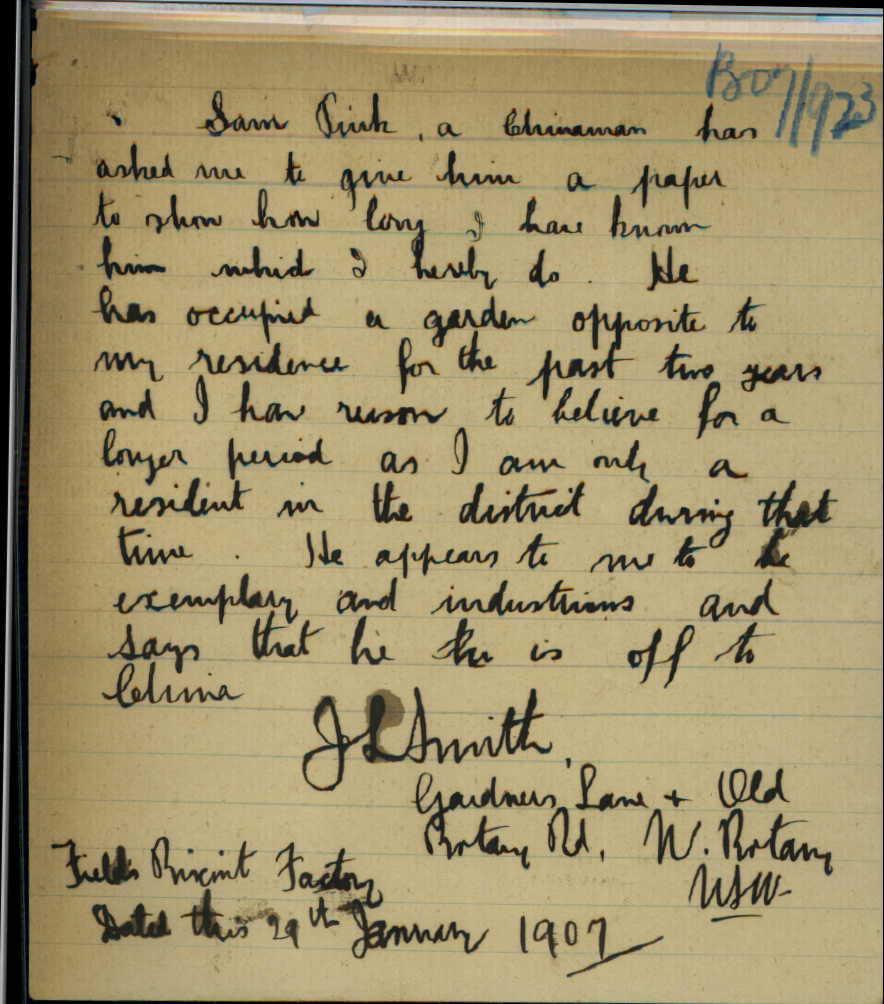 B07/1923
Sam Pink, a Chinaman has
asked me to give him a paper
to show how long I have known
him which I hereby do. He
has occupied a garden opposite to
my residence for the past two years
and I have reason to believe for a
longer period as I am only a
resident in the district during that
time. He appears to me to be
exemplary and industrious and
says that he is off to
China
J L Smith,
Gardners Lane + Old
Botany Rd, W. Botany
NSW
Field's Biscuit Factory
Dated this 29th January 1907